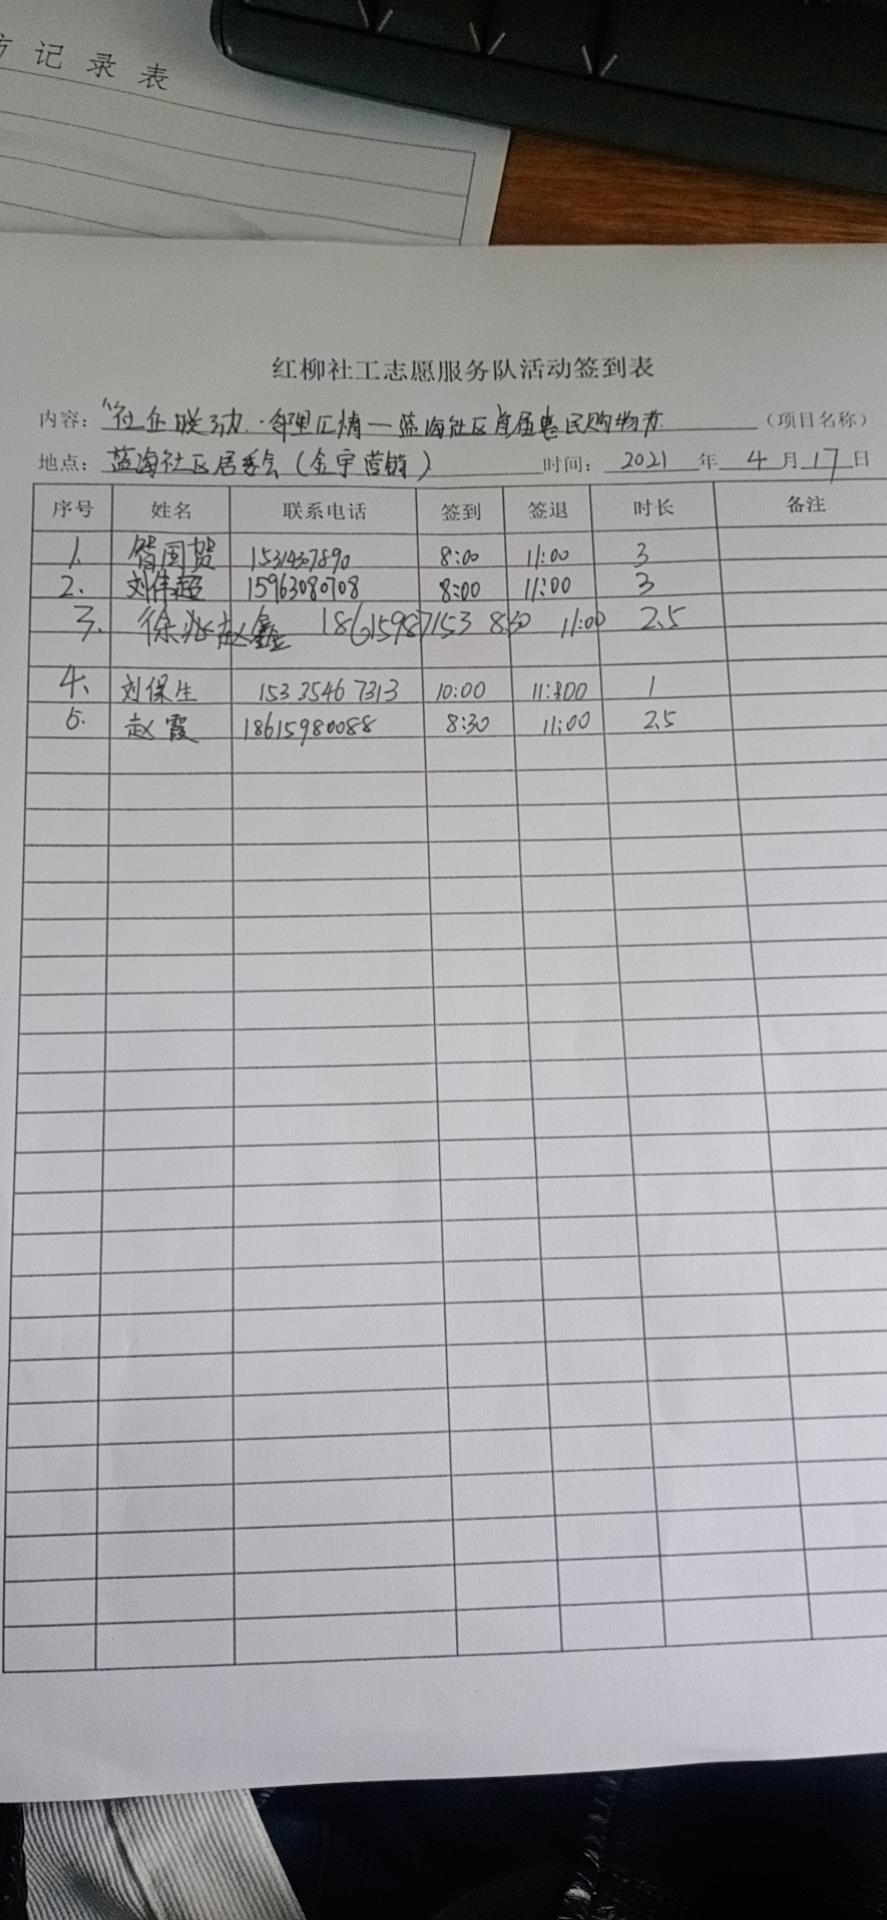 记录表
红柳社工志愿服务队活动签到表
内容：“社企联动·邻里汇情—蓝海社区首届惠民购物节（项目名称）
地点：蓝海社区居委会（金宇营销）时间：2021年4月17日
序号 姓名 联系电话 签到 签退 时长 备注
1. 国贺 8:00 11:00 3
2. 刘伟超 15963080708 8:00 11:00 3
3. 徐 赵鑫 18615987153 8:30 11:00 2.5
4. 刘保生 153 3546 7313 10:00 11:00 1
5. 赵霞 18615980088 8:30 11:00 2.5